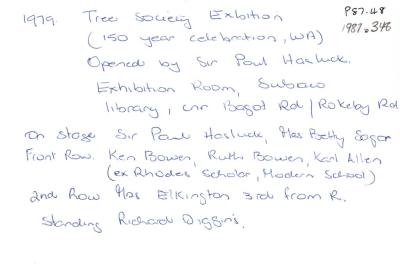 1979. Tree Society Exbition
P87.48
(150 year celebration, WA)
1987.348
Opened by Sir Paul Hasluck.
Exhibition Room, Subiaco
library, cnr Bagot Rd / Rokeby Rd
On stage Sir Paul Hasluck, Mrs Betty Sagar
Front Row. Ken Bowen, Ruth Bowen, Karl Allen
(ex Rhodes Scholar, Modern School)
2nd Row Mrs Elkington 3rd from R.
Standing Richard Diggins.